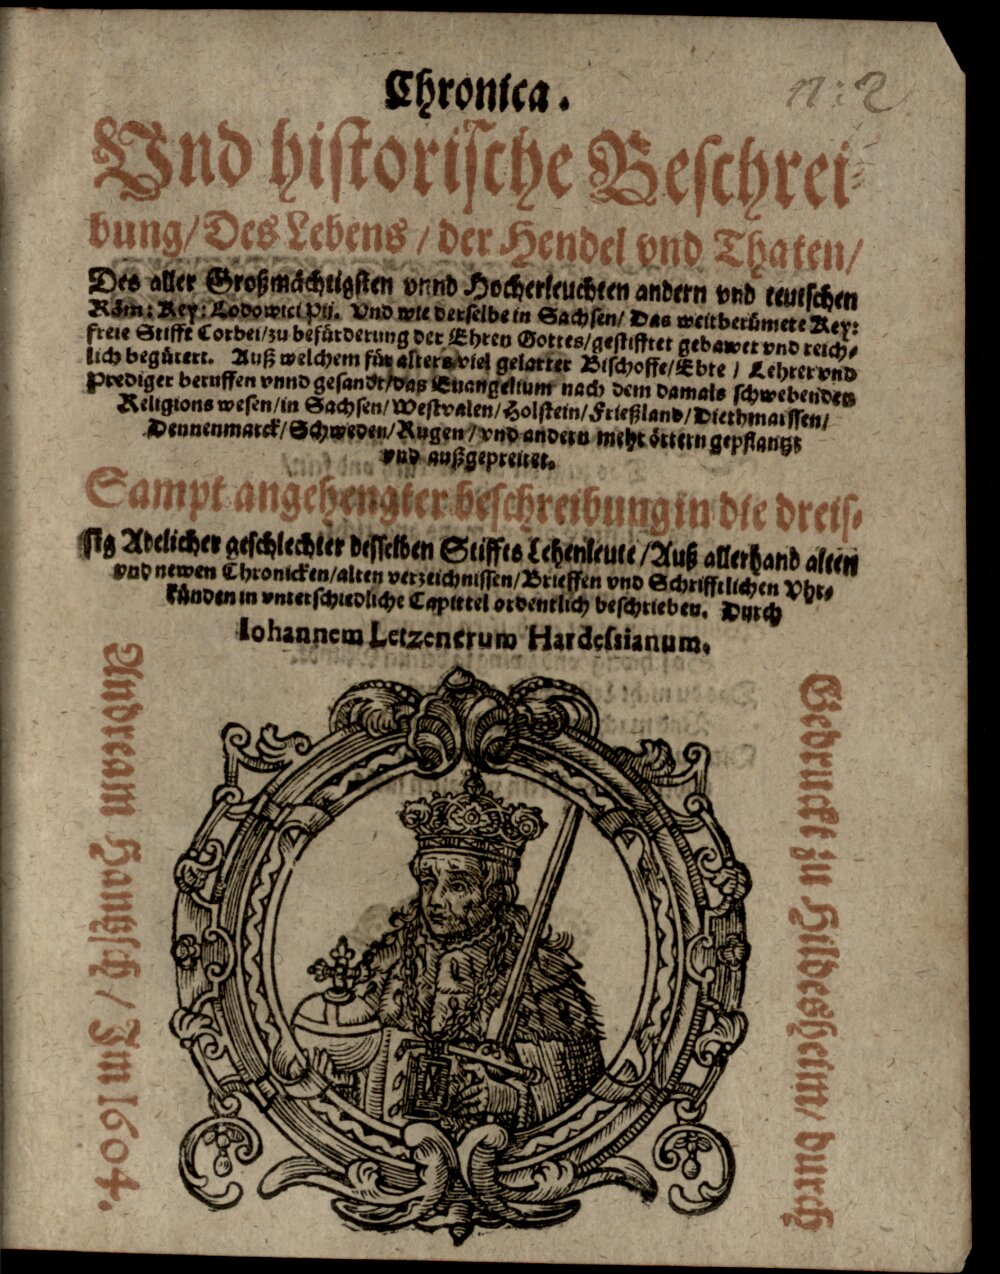 Chronica.
n: 2
Vnd historische Beschrei-
bung/ Des Lebens / der Hendel vnd Thaten/
Des aller Großmächtigsten vnnd Hocherleuchten andern vnd teutschen
Röm: Key: Lodowici Pij. Vnd wie derselbe in Sachsen/ Das weitberümete Key:
freie Stifft Corbei/ zu befürderung der Ehren Gottes/ gestifftet gebawet vnd reich-
lich begütert. Auß welchem für alters viel gelarter Bischoffe/ Ebte / Lehrer vnd
Prediger beruffen vnnd gesandt/ das Euangelium nach dem damals schwebenden
Religions wesen/ in Sachsen/ Westvalen/ Holstein/ Frießland/ Diethmarssen/
Dennenmarck/ Schweden/ Rugen / vnd andern mehr örtern gepflantzt
vnd außgepreitet.
Sampt angehengter beschreibung in die dreis-
sig Adelicher geschlechter desselben Stiffts Lehenleute / Auß allerhand alten
vnd newen Chronicken/ alten verzeichnissen/ Brieffen vnd Schrifftlichen Vhr-
künden in vnterschiedliche Capittel ordentlich beschrieben. Durch
Iohannem Letznerum Hardessianum.
Gedruckt zu Hildesheim/ durch
Andream Hantzsch / Im 1604.